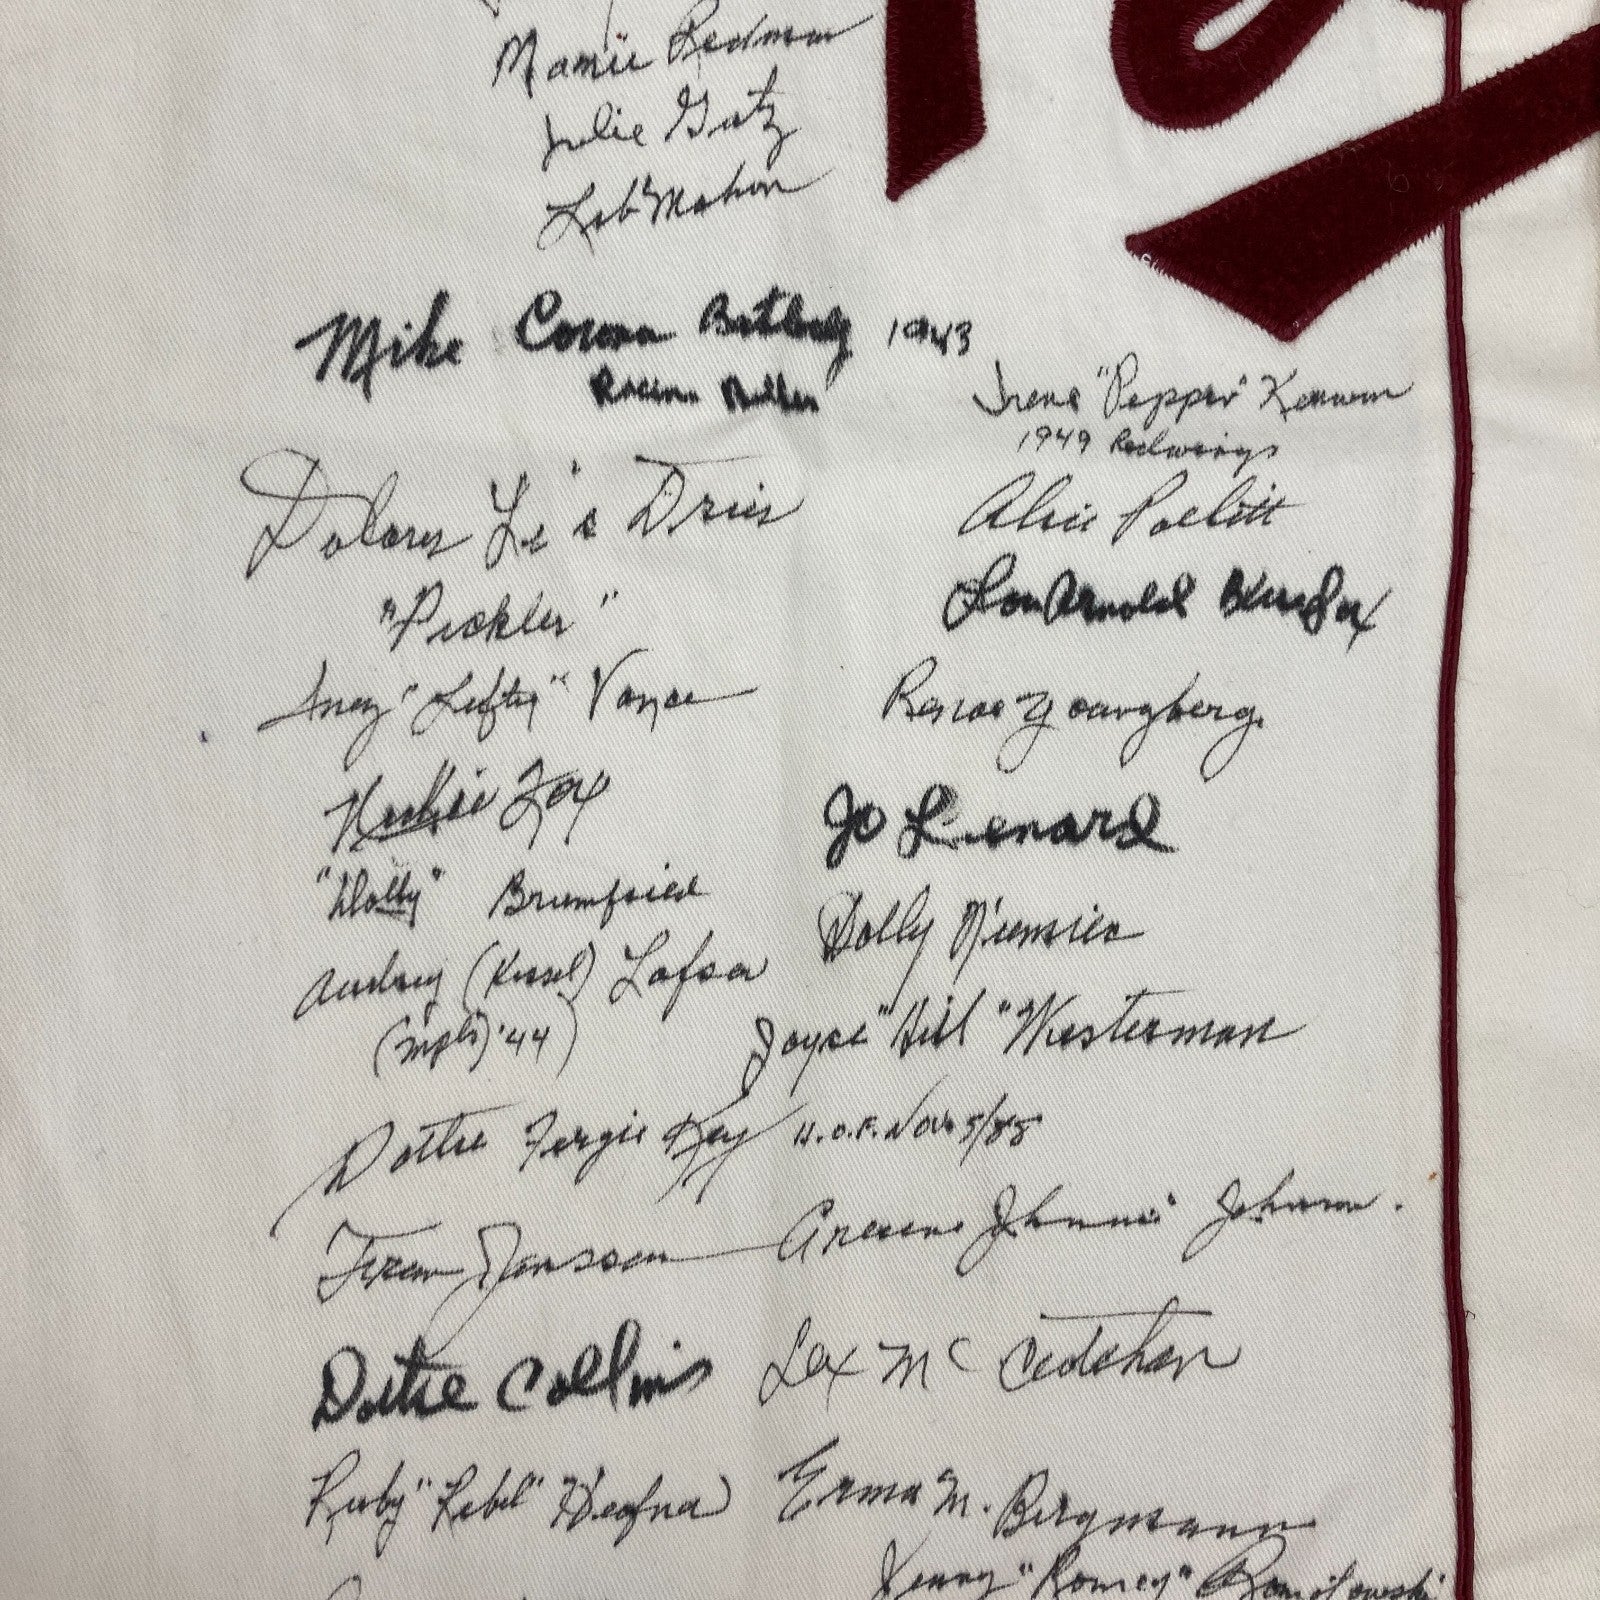 Mamie Redman
Julie Gutz
"Lib" Mahon
Mike Corona 1943
Racine Belles
Irene "Pepper" Kerwin
1949 Redwings
Dolores Lee Dries
"Pickles"
Alice Pollitt
Lou Arnold
Inez "Lefty" Voyce
Renae Youngberg
Nickie Fox
Jo Lenard
"Dolly" Brumfield
Dolly Niemiec
Audrey (Kissel) Lafser
(Mpls) '44)
Joyce "Hill" Westerman
Dottie Fergie Key H.O.F. Nov 5/88
Fran Janssen
Arleene Johnnie Johnson.
Dottie Collins
Lex McCutchan
Ruby "Rebel" Heafner
Erma M. Bergmann
Jenny "Romey" Romatowski